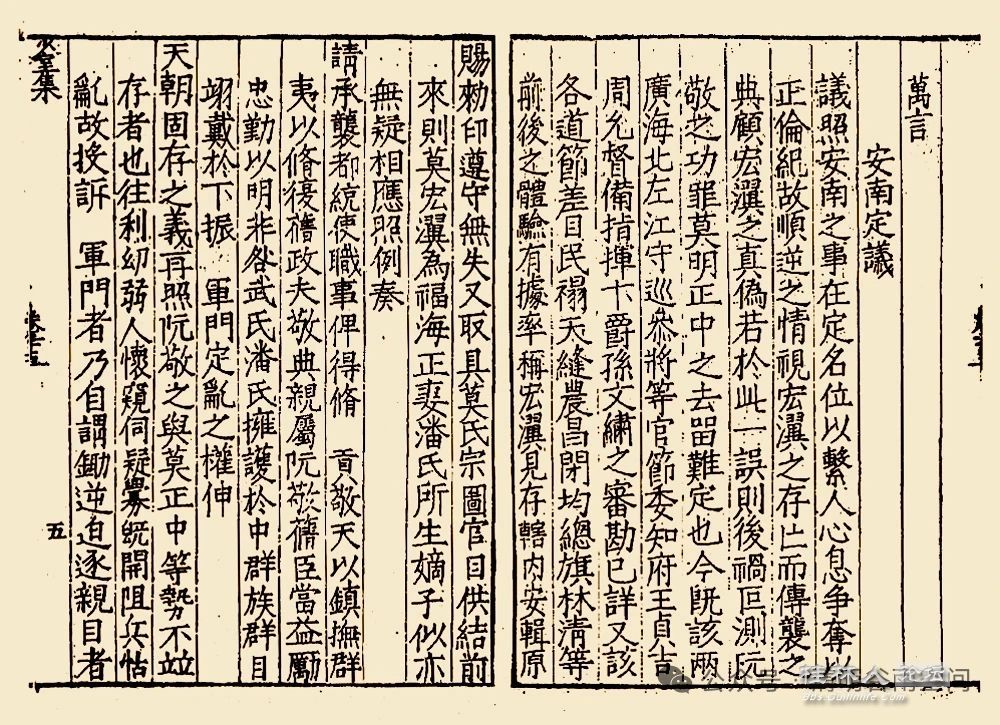 萬言
安南定議
議照安南之事在定名位以繫人心息爭奪以
正倫紀故順逆之情視宏瀷之存亡而傳襲之
典顧宏瀷之真偽若於此一誤則後禍叵測阮
敬之功罪莫明正中之去畱難定也今旣該兩
廣海北左江守巡叅將等官節委知府王貞吉
周允督備指揮卞爵孫文繡之審勘已詳又該
各道節差目民禤天縫農昌閉均總旗林清等
前後之體驗有據率稱宏瀷見存轄内安輯原
賜勑印遵守無失又取具莫氏宗圖官目供結前
來則莫宏瀷為福海正妻潘氏所生嫡子似亦
無疑相應照例奏
請承襲都統使職事俾得脩 貢敬天以鎮撫群
夷以脩擾禮政夫敬典親屬阮敬舊臣當益勵
忠勤以明非咎武氏潘氏擁護於中群族群目
翊戴於下振 軍門定亂之權伸
天朝固存之義再照阮敬之與莫正中等勢不並
存者也往利幼弱人懷窺伺疑釁旣開阻兵怙
亂故投訴 軍門者乃自謂鋤逆迫逐親目者
集
五